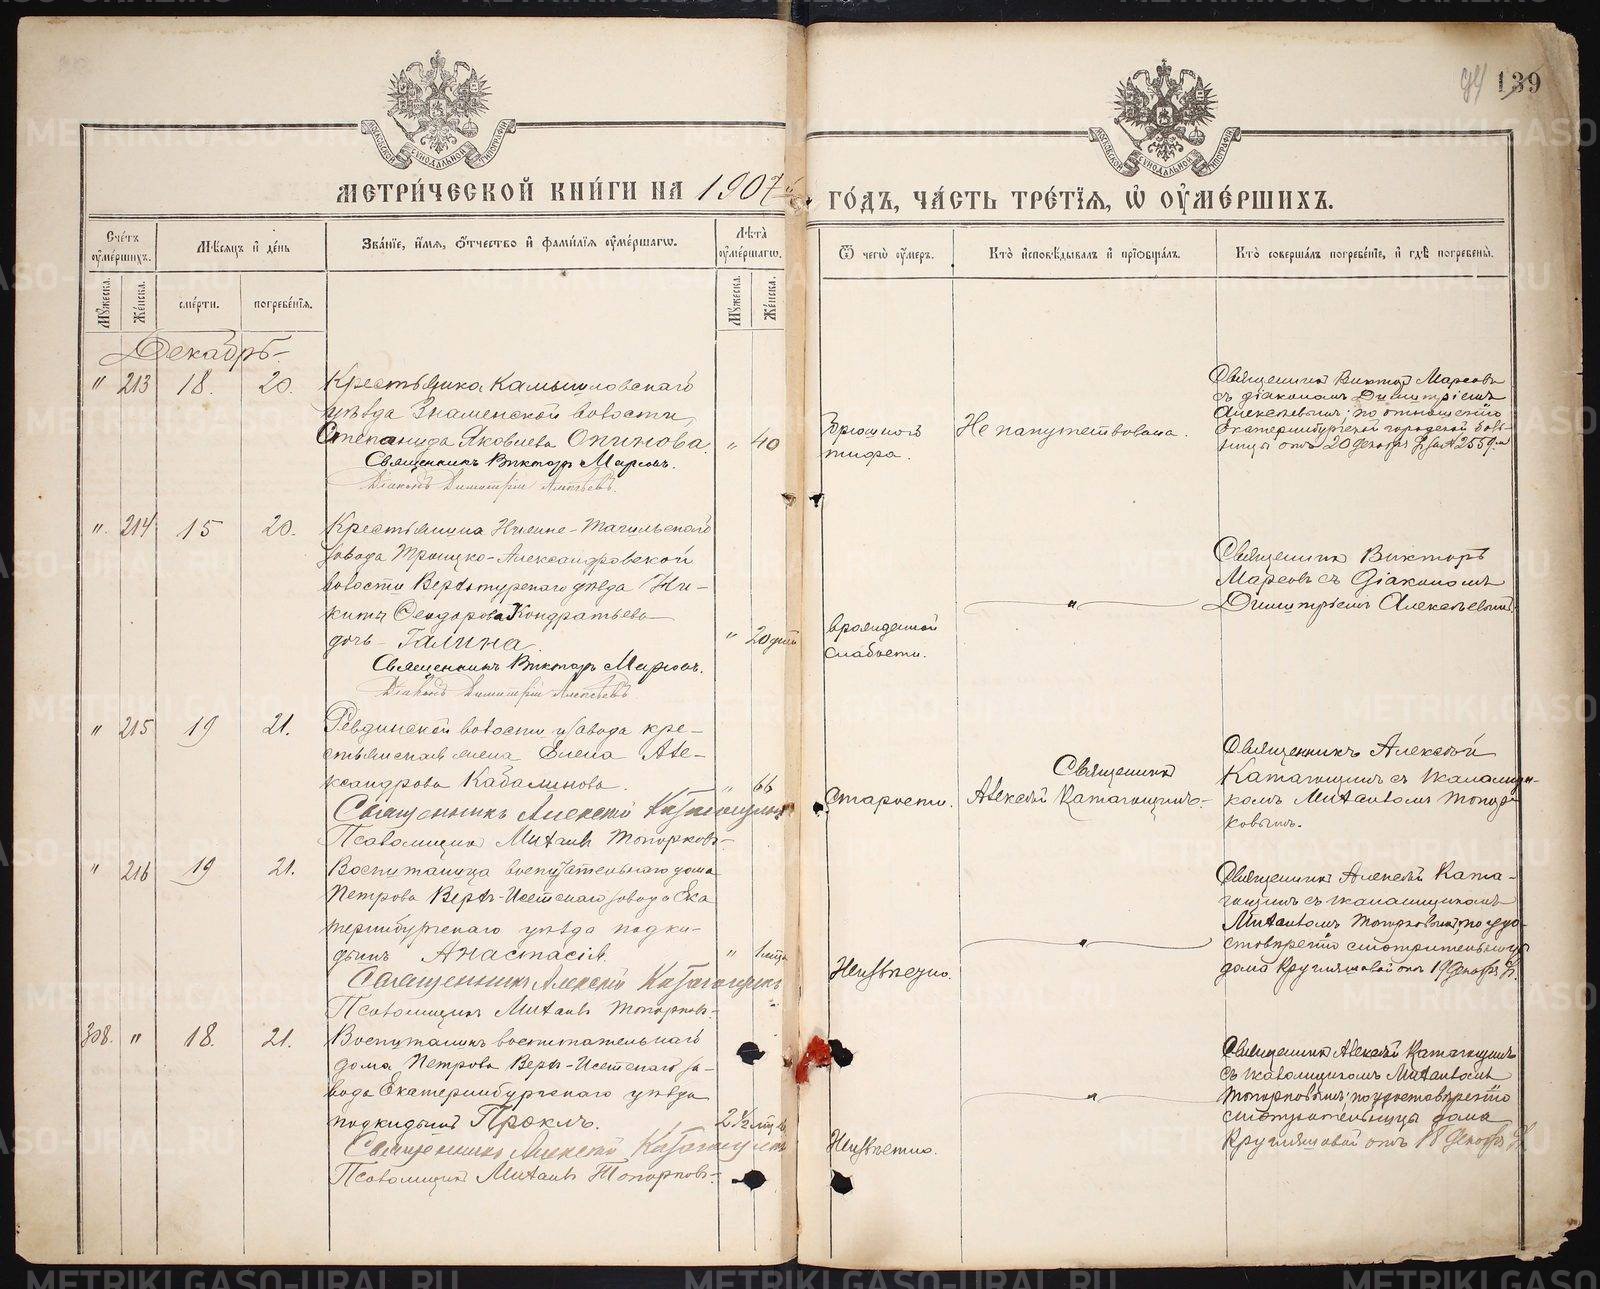 139
94
МОСКОВСКОЙ СѴНОДАЛЬНОЙ ТИПОГРАФІИ
МОСКОВСКОЙ СѴНОДАЛЬНОЙ ТИПОГРАФІИ
МЕТРИ́ЧЕСКОЙ КНИ́ГИ НА 1907й
ГО́ДЪ, ЧА́СТЬ ТРЕ́ТЇѦ, Ѡ҆ ОУ҆МЕ́РШИХЪ.
Сче́тъ оу҆ме́ршихъ.
Мѣ́сяцъ и҆ де́нь
Зва́нїе, и҆́мѧ, ѻ҆́тчество и҆ фами́лїѧ оу҆ме́ршагѡ.
Лѣ́та оу҆ме́ршагѡ.
Ѿ чегѡ̀ оу҆́меръ.
Кто̀ и҆сповѣ́дывалъ и҆ прїѡбща́лъ.
Кто̀ соверша́лъ погребе́нїе, и҆ гдѣ̀ погребены̀.
Мꙋ́жеска. Же́нска.
сме́рти.
погребе́нїѧ.
Мꙋ́жеска. Же́нска.
Декабрь
" 213 18. 20.
Крестьянка Камышловскаго
уѣзда Знаменской волости
Степанида Яковлева Опинова. " 40
Священникъ Викторъ Марсовъ.
Діаконъ Димитрій
Брюшного
тифа.
Не напутствована.
Священникъ Викторъ Марсовъ
съ діакономъ Димитріемъ
Алексѣевымъ; по отношенію
Екатеринбургской городской боль-
ницы отъ 20 декабря за № 2559.
" 214 15 20.
Крестьянина Нижне-Тагильскаго
завода Троицко-Александровской
волости Верхотурскаго уѣзда Ни-
киты Ѳеодорова Кондратьева
дочь Галина. " 20 дней
Священникъ Викторъ Марсовъ.
Діаконъ Димитрій
врожденной
слабости.
"
Священникъ Викторъ
Марсовъ съ діакономъ
Димитріемъ Алексѣевымъ
" 215 19 21.
Ревдинской волости и завода кре-
стьянская жена Елена Але-
ксандрова Кабалинова. " 66
Священникъ Алексій Катагощинъ
Псаломщикъ Михаилъ Топорковъ
Старости.
Священникъ
Алексій Катагощинъ.
Священникъ Алексій
Катагощинъ съ псаломщи-
комъ Михаиломъ Топор-
ковымъ.
" 216 19 21.
Воспитаница воспитательнаго дома
Петрова Верхъ-Исетскаго завода Ека
теринбургскаго уѣзда подки-
дышъ Анастасія. "
Священникъ Алексій Катагощинъ
Псаломщикъ Михаилъ Топорковъ.
Неизвѣстно.
"
Священникъ Алексій Ката-
гощинъ съ псаломщикомъ
Михаиломъ Топорковымъ; по удо-
стовѣренію смотрительницы
дома Кругляшовой отъ 19 декабря
308. " 18. 21.
Воспитаникъ воспитательнаго
дома Петрова Верхъ-Исетскаго за-
вода Екатеринбургскаго уѣзда
подкидышъ Проклъ. 2½ мѣс
Священникъ Алексій Катагощинъ
Псаломщикъ Михаилъ Топорковъ.
Неизвѣстно.
"
Священникъ Алексій Катагощинъ
съ псаломщикомъ Михаиломъ
Топорковымъ; по удостовѣренію
смотрительницы дома
Кругляшовой отъ 18 декабря
METRIKI.GASO-URAL.RU